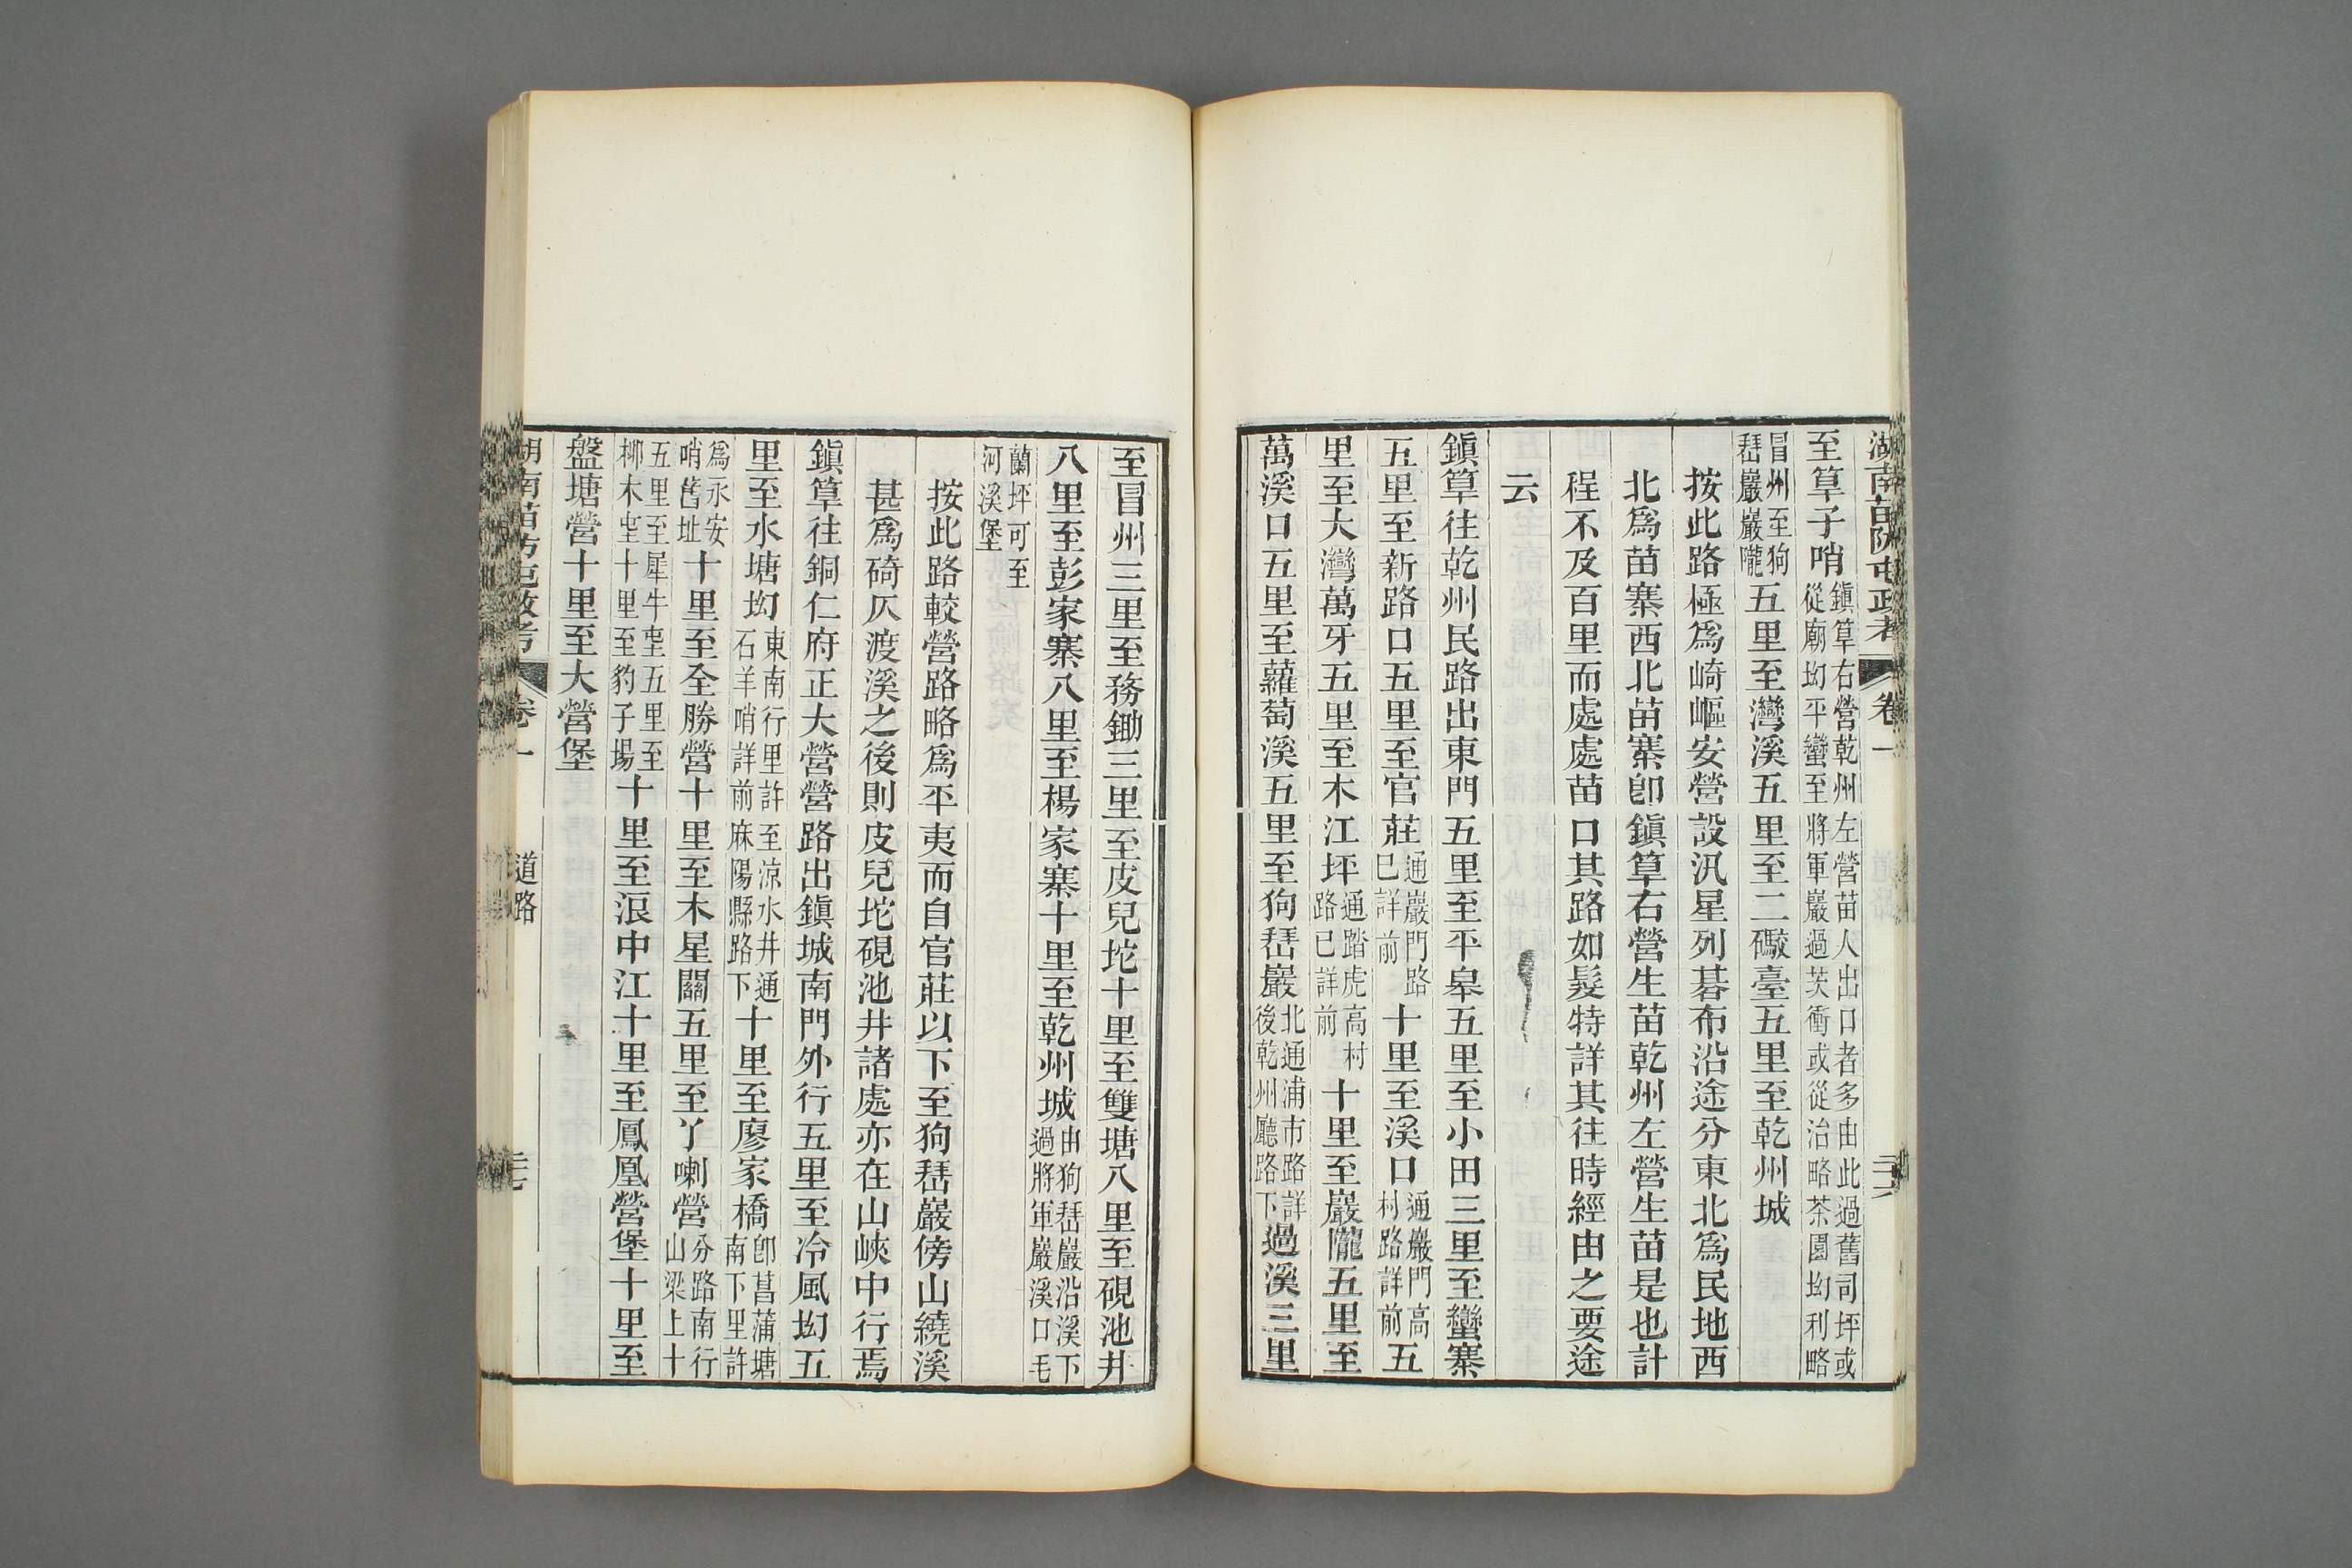 湖南苗防屯政考 卷一 二十六
至筸子哨鎮筸右營乾州左營苗人出口者多由此過舊司坪或從廟坳平蠻至將軍巖過芡衝或從治略茶園坳利略
冒州至狗琵巖巖隴五里至灣溪五里至二礮臺五里至乾州城
按此路極爲崎嶇安營設汛星列碁布沿途分東北爲民地西
北爲苗寨西北苗寨卽鎮筸右營生苗乾州左營生苗是也計
程不及百里而處處苗口其路如髮特詳其往時經由之要途
云
鎮筸往乾州民路出東門五里至平皋五里至小田三里至蠻寨
五里至新路口五里至官莊通巖門路已詳前十里至溪口通巖門高村路詳前五
里至大灣萬牙五里至木江坪通踏虎高村路已詳前十里至巖隴五里至
萬溪口五里至蘿蔔溪五里至狗琵巖北通浦市路詳後乾州廳路下過溪三里
至冒州三里至務鋤三里至皮兒坨十里至雙塘八里至硯池井
八里至彭家寨八里至楊家寨十里至乾州城由狗琵巖沿溪下過將軍巖溪口毛
蘭坪可至河溪堡
按此路較營路略爲平夷而自官莊以下至狗琵巖傍山繞溪
甚爲碕仄渡溪之後則皮兒坨硯池井諸處亦在山峽中行焉
鎮筸往銅仁府正大營營路出鎮城南門外行五里至冷風坳五
里至水塘坳東南行里許至涼水井通石羊哨詳前麻陽縣路下十里至廖家橋卽菖蒲塘南下里許
爲永安哨舊址十里至全勝營十里至木星關五里至丫喇營分路南行山梁上十
五里至犀牛屯五里至梛木屯十里至豹子場十里至浪中江十里至鳳凰營堡十里至
盤塘營十里至大營堡
湖南苗防屯政考 卷一 道路 二十七